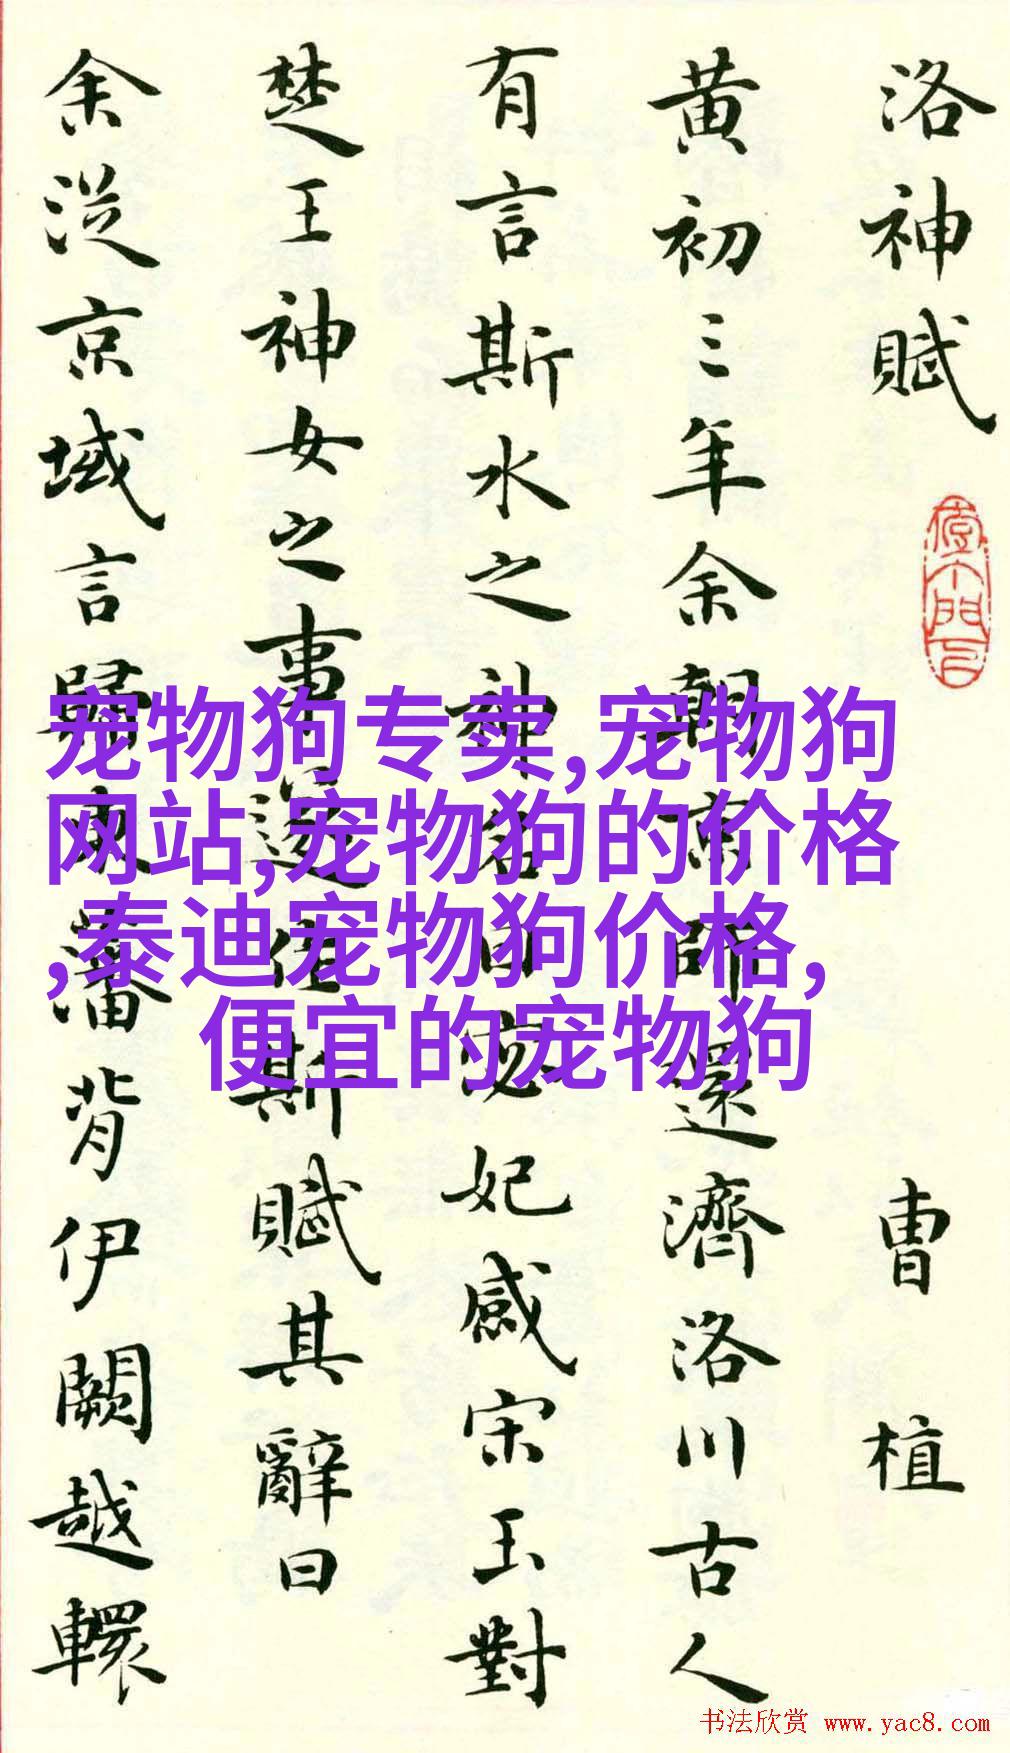 洛神賦
曹植
黃初三年余朝京師還濟洛川古人
有言斯水之神名曰宓妃感宋玉對
楚王神女之事遂作斯賦其辭曰
余從京域言歸東藩背伊闕越轘
宠物狗专卖,宠物狗
网站,宠物狗的价格
,泰迪宠物狗价格,
便宜的宠物狗
书法欣赏 www.yac8.com